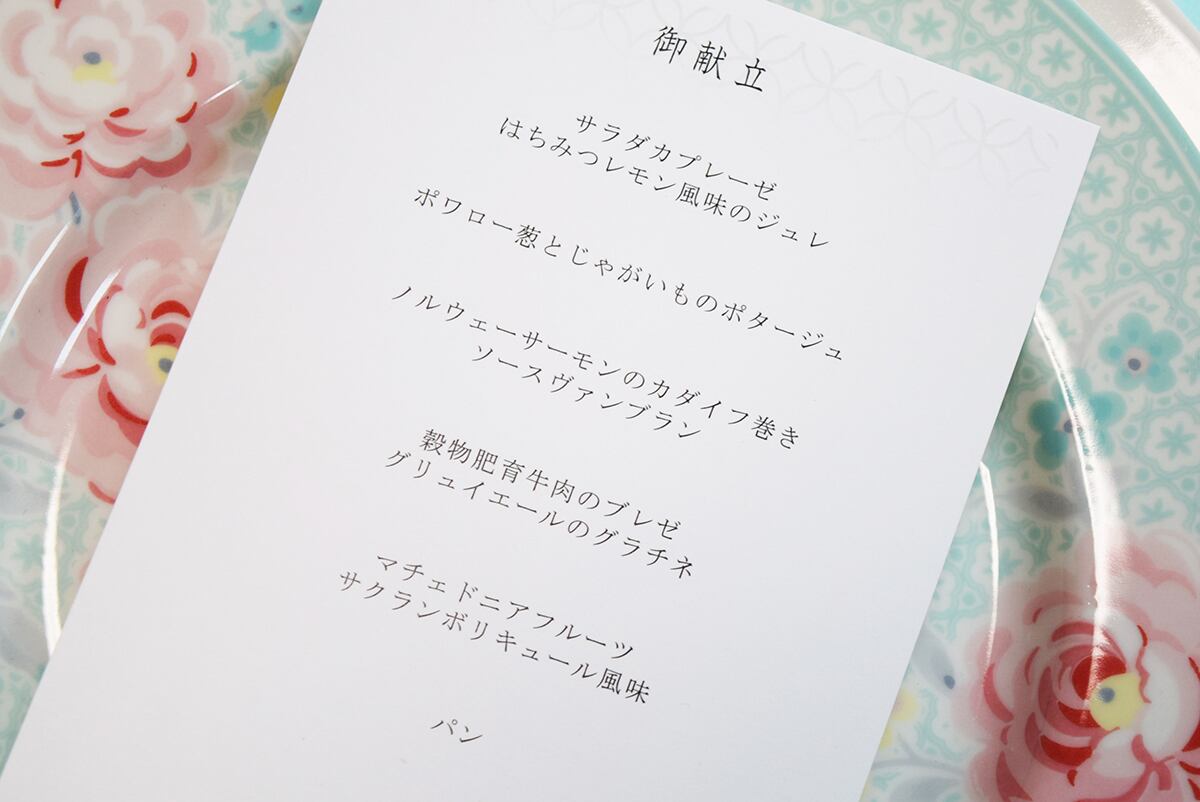 御献立
サラダカプレーゼ
はちみつレモン風味のジュレ
ポワロー葱とじゃがいものポタージュ
ノルウェーサーモンのカダイフ巻き
ソースヴァンブラン
穀物肥育牛肉のブレゼ
グリュイエールのグラチネ
マチェドニアフルーツ
サクランボリキュール風味
パン